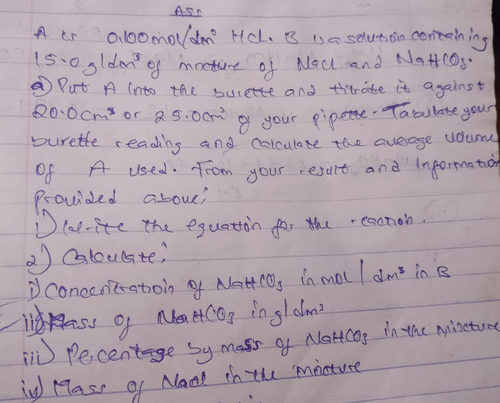 Ass
A is 0.100mol/dm³ HCl. B is a solution containing
15.0g/dm³ of mixture of Nacl and NaHCO₃.
a) Put A into the burette and titrate it against
20.0cm³ or 25.0cm³ of your pipette. Tabulate your
burette reading and calculate the average volume
of A used. From your result and information
provided above;
1) Write the equation for the reaction.
2) Calculate;
i) Concentration of NaHCO₃ in mol/dm³ in B
ii) Mass of NaHCO₃ in g/dm³
iii) Percentage by mass of NaHCO₃ in the mixture
iv) Mass of Nacl in the mixture